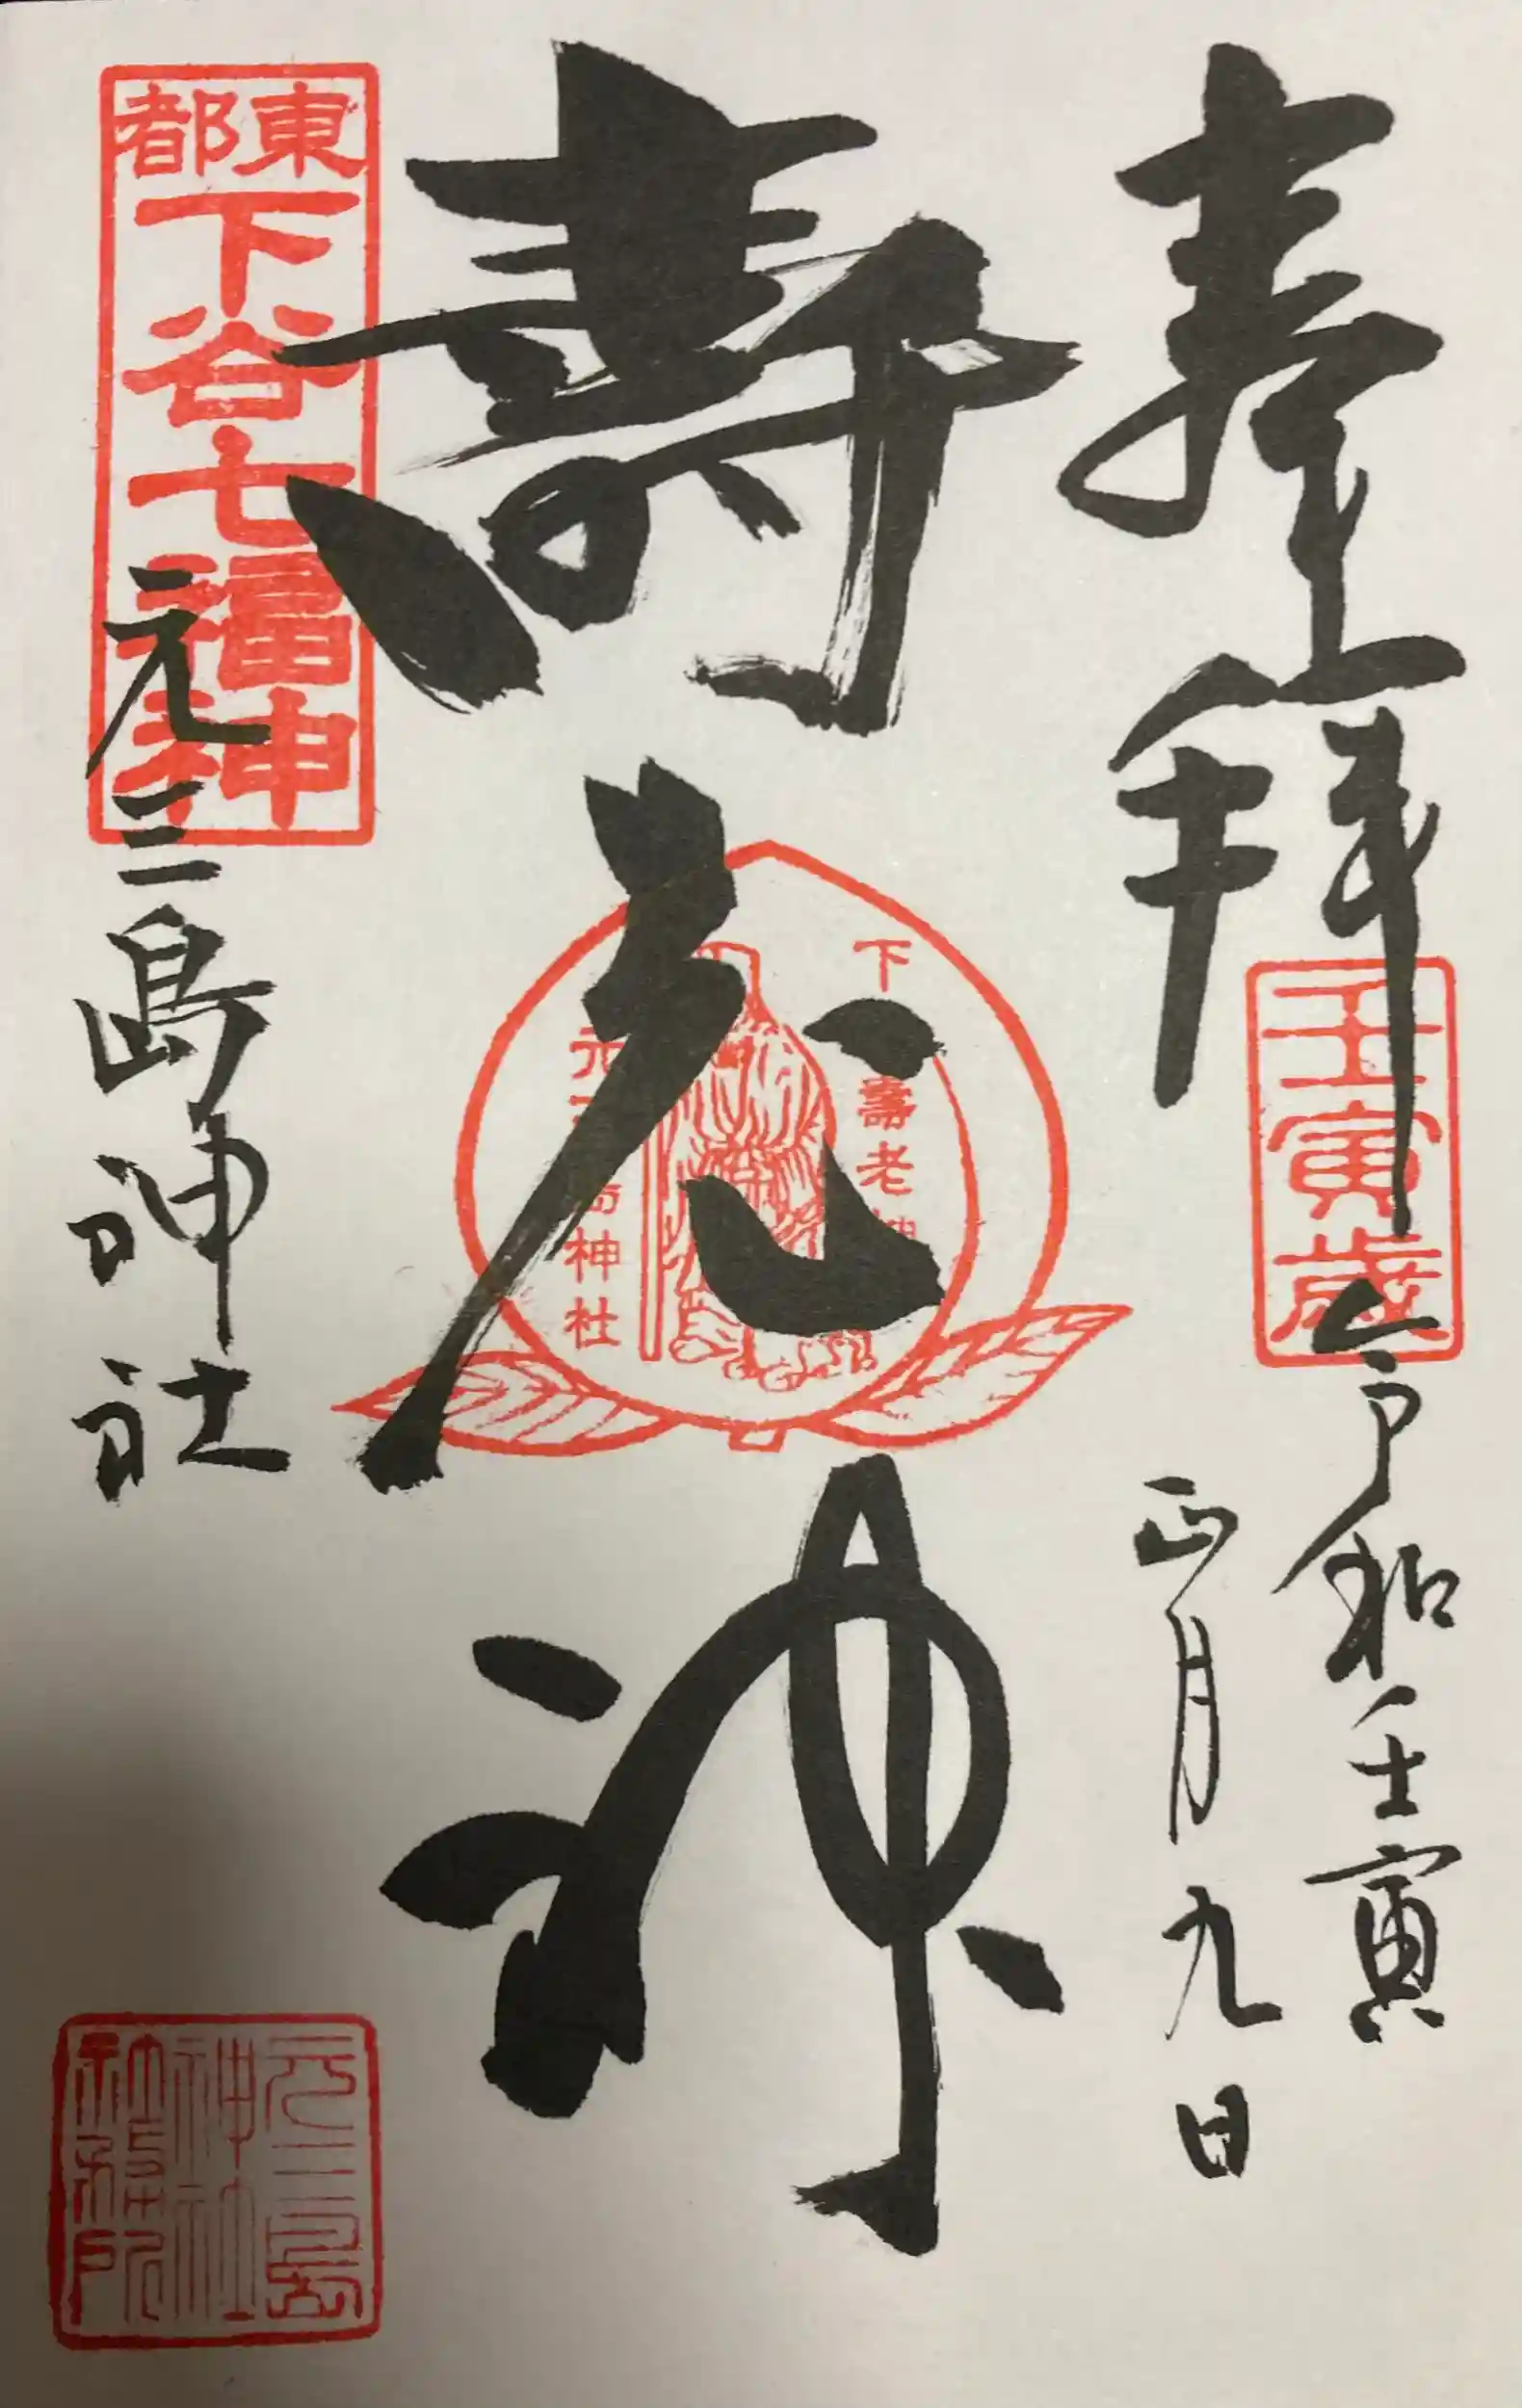 拝
壬寅歳
令和壬寅
正月九日
壽老神
下
壽老神
元三島神社
東都
下谷七福神
元三島神社
元三島
神社
社務所